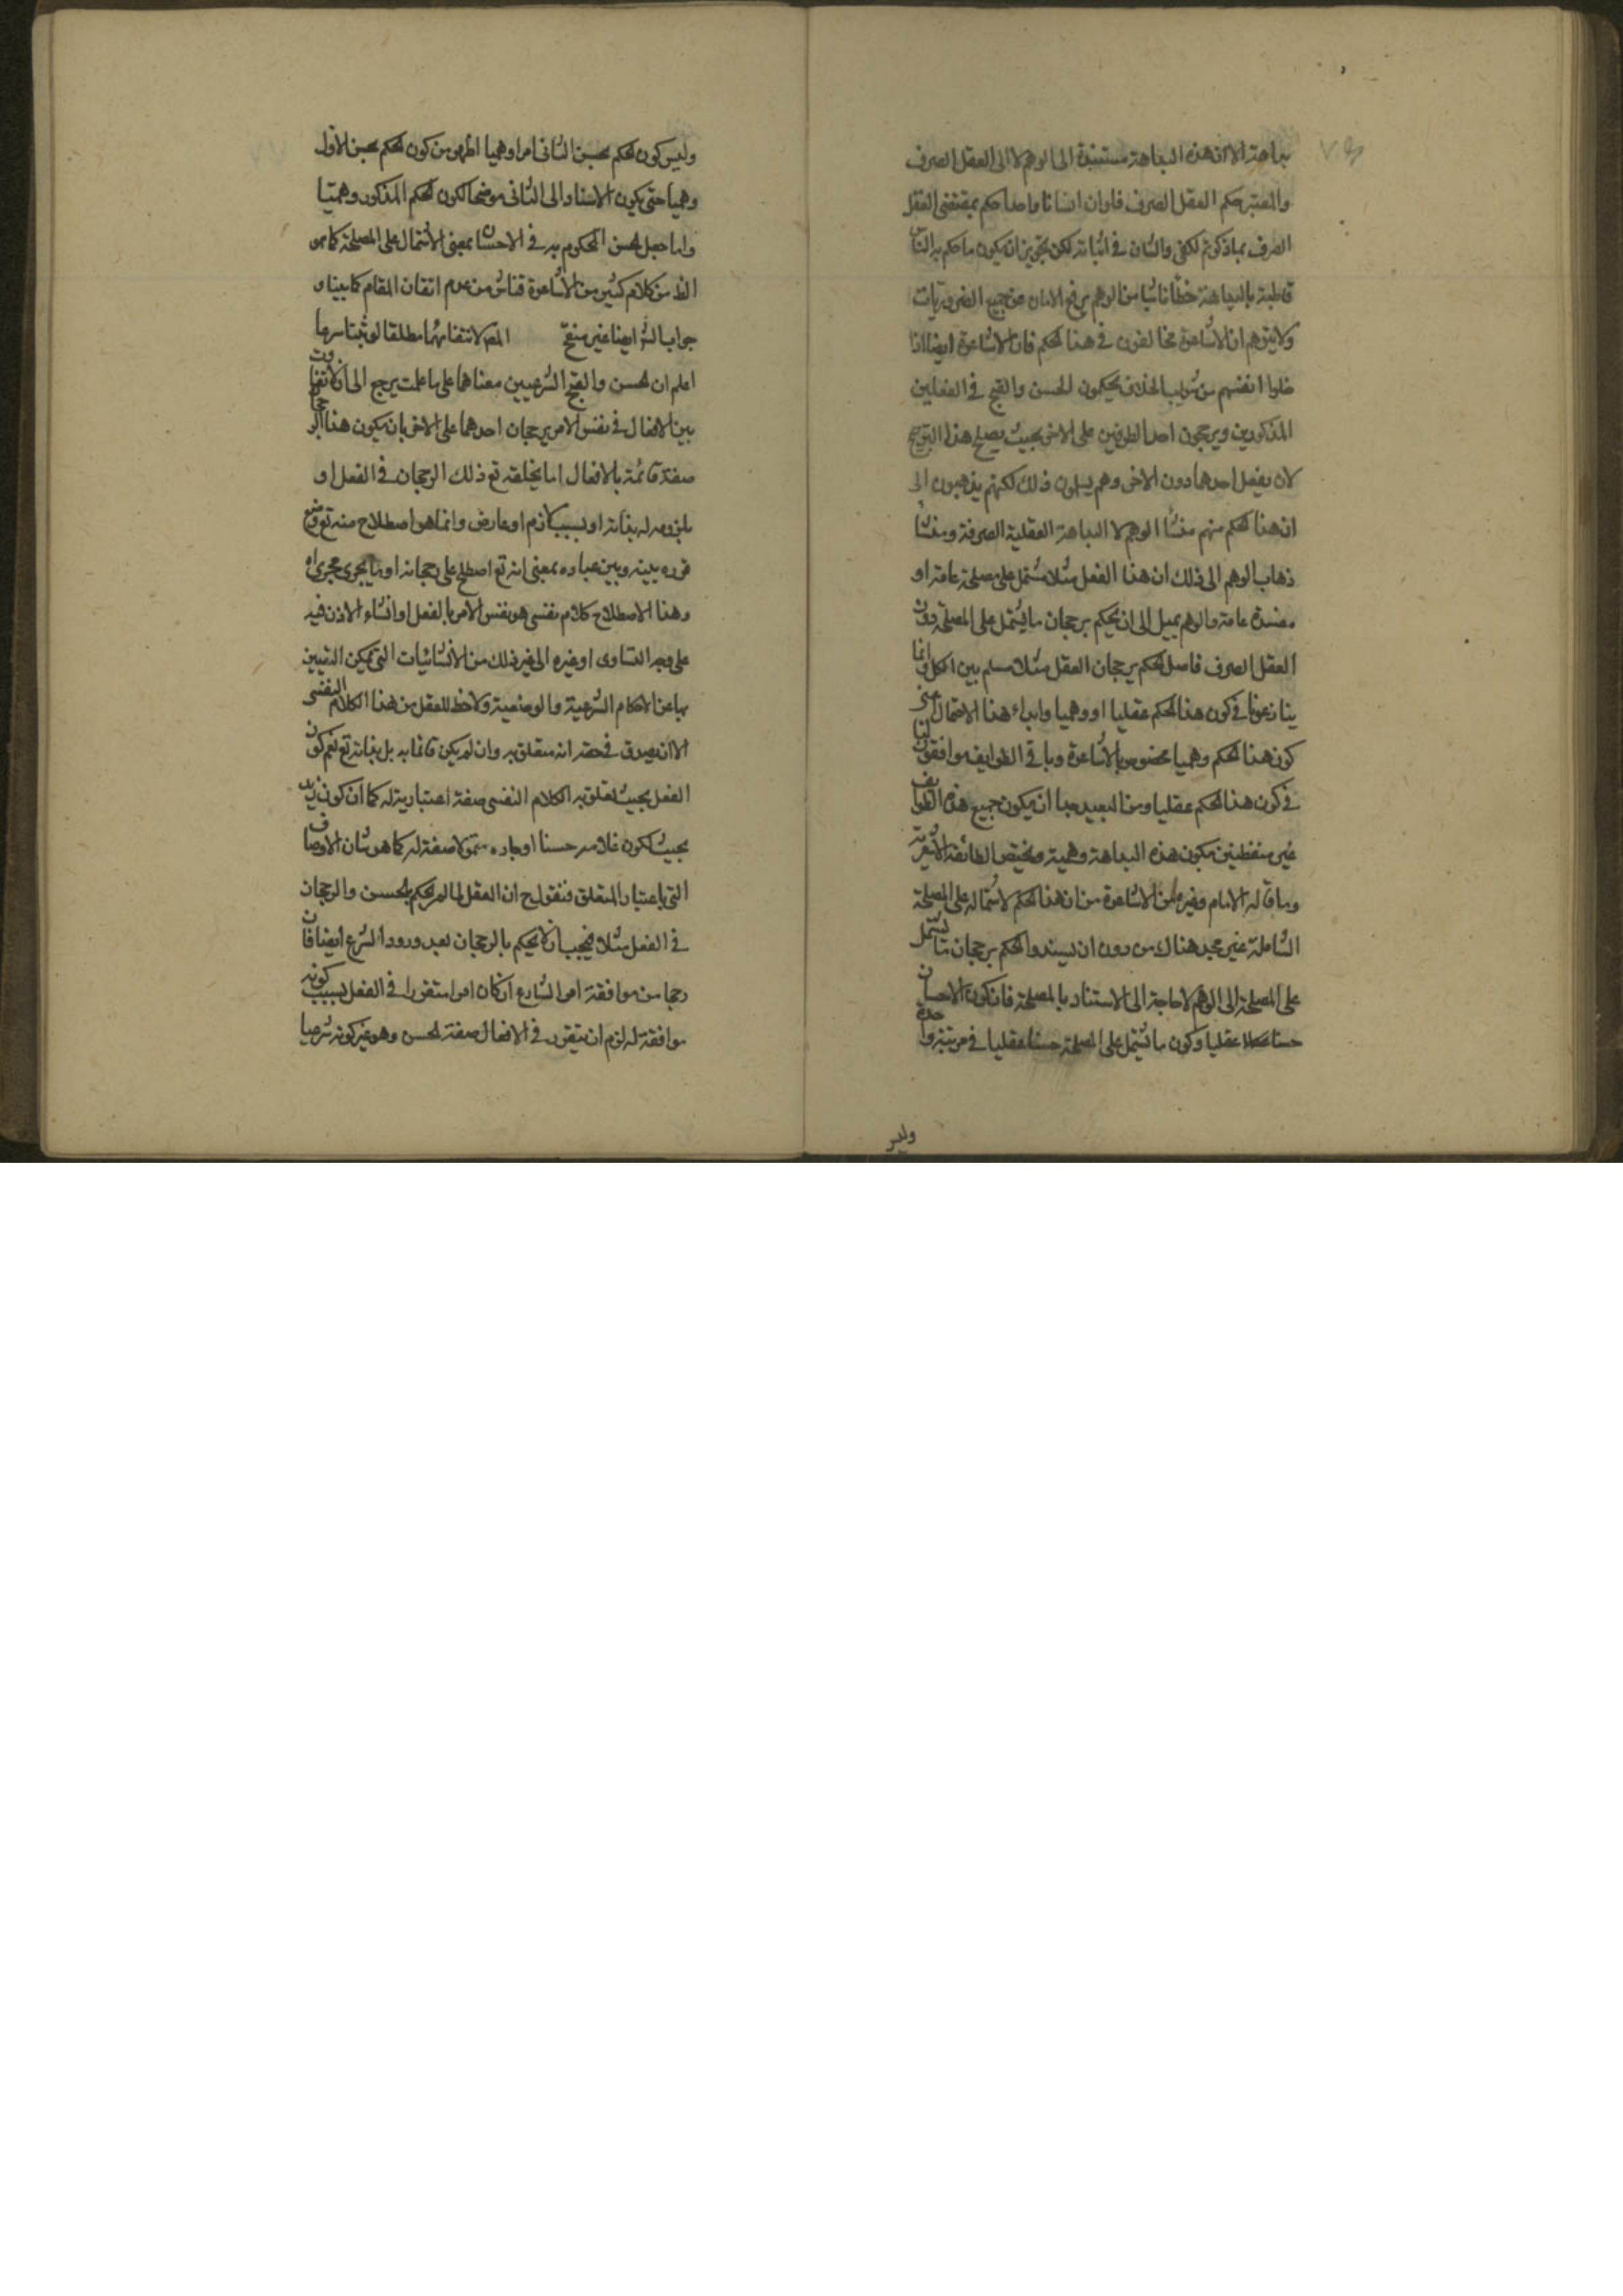 بداهة الا ان هذه البداهة مستندة الى الوهم لا الى العقل الصرف
والمعتبر حكم العقل الصرف فلو ان انسانا واحدا حكم بمقتضى العقل
الصرف بما ذكرتم لكفى والشان في اثباته لكن تجويز ان يكون ما حكم به الناس
قاطبة بالبداهة خطأ ناشيا من الوهم يرفع الامان عن جميع الضروريات
ولا يتوهم ان الاشاعرة مخالفون في هذا الحكم فان الاشاعرة ايضا اذا
خلوا انفسهم من شوايب الخلاف يحكمون الحسن والقبح في الفعلين
المذكورين ويرجحون احد الطرفين على الاخر بحيث يصلح هذا الترجيح
لان يفعل احدهما دون الاخر وهم يسلمون ذلك لكنهم يذهبون الى
ان هذا الحكم منهم منشأ الوهم لا البداهة العقلية الصرفة ومنشأ
ذهاب الوهم الى ذلك ان هذا الفعل مثلا مشتمل على مصلحة عامة او
مفسدة عامة والوهم يميل الى ان يحكم برجحان ما يشتمل على المصلحة دون
العقل الصرف فاصل الحكم برجحان العقل مثلا مسلم بين الكل وانما
ينازعونا في كون هذا الحكم عقليا او وهميا وابداء هذا الاحتمال اعنى
كون هذا الحكم وهميا مخصوص بالاشاعرة وباقى الطوايف موافقون لنا
في كون هذا الحكم عقليا ومن البعيد جدا ان يكون جميع هذه الطوايف
غير متفطنين بكون هذه البداهة وهمية ومختص الطائفة الاشعرية
وما قاله الامام وغيره من الاشاعرة من ان هذا الحكم لاشتماله على المصلحة
الشاملة غير مجد هناك من دون ان يسندوا الحكم برجحان ما يشتمل
على المصلحة الى الوهم لا حاجة الى الاستناد بالمصلحة فان كون الاحسان
حسنا عقليا وكون ما يشتمل على المصلحة حسنا عقليا في مرتبة واحدة
وليس
وليس كون الحكم بحسن الثانى امرا وهميا اظهر من كون الحكم بحسن الاول
وهميا حتى يكون الاسناد الى الثانى موضحا لكون الحكم المذكور وهميا
واما جعل الحسن المحكوم به في الاحسان بمعنى الاشتمال على المصلحة كما هو
الظ من كلام كثير من الاشاعرة فناش من عدم اتقان المقام كما بينا و
جواب الش ايضا غير منقح المص لانتفائهما مطلقا لو ثبتا شرعا
اعلم ان الحسن والقبح الشرعيين معناهما على ما علمت يرجع الى ان لا تفاوت
بين الافعال في نفس الامر برجحان احدهما على الاخر بان يكون هذا الرجحان
صفة قائمة بالافعال اما بخلقه تع ذلك الرجحان في الفعل او
بلزومه له بذاته او بسبب لازم او عارض وانما هو اصطلاح منه تع وضع
قرره بينه وبين عباده بمعنى انه تع اصطلح على رجحانه او ما يجرى مجراه
وهذا الاصطلاح كلام نفسى هو نفس الامر بالفعل او انشاء الاذن فيه
على وجه التساوى او غيره الى غير ذلك من الانشائيات التى يمكن التعبير
بها عن الاحكام الشرعية والوضعية ولا حظ للعقل من هذا الكلام النفسى
الا ان يصدق في حقه انه متعلق به وان لم يكن قائما به بل بذاته تع نعم كون
الفعل بحيث تعلق به الكلام النفسى صفة اعتبارية له كما ان كون زيد
بحيث يكون غلامه حسنا او جاره متمولا صفة له كما هو شان الاوصاف
التى باعتبار المتعلق فنقول ح ان العقل لما لم يحكم بالحسن والرجحان
في الفعل مثلا فيجب ان لا يحكم بالرجحان بعد ورود الشرع ايضا فان
رجحا من موافقة امر الشارع ان كان امرا متقررا في الفعل بسبب كونه
موافقة له لزم ان يتقرر في الافعال صفة الحسن وهو غير كونه شرعيا